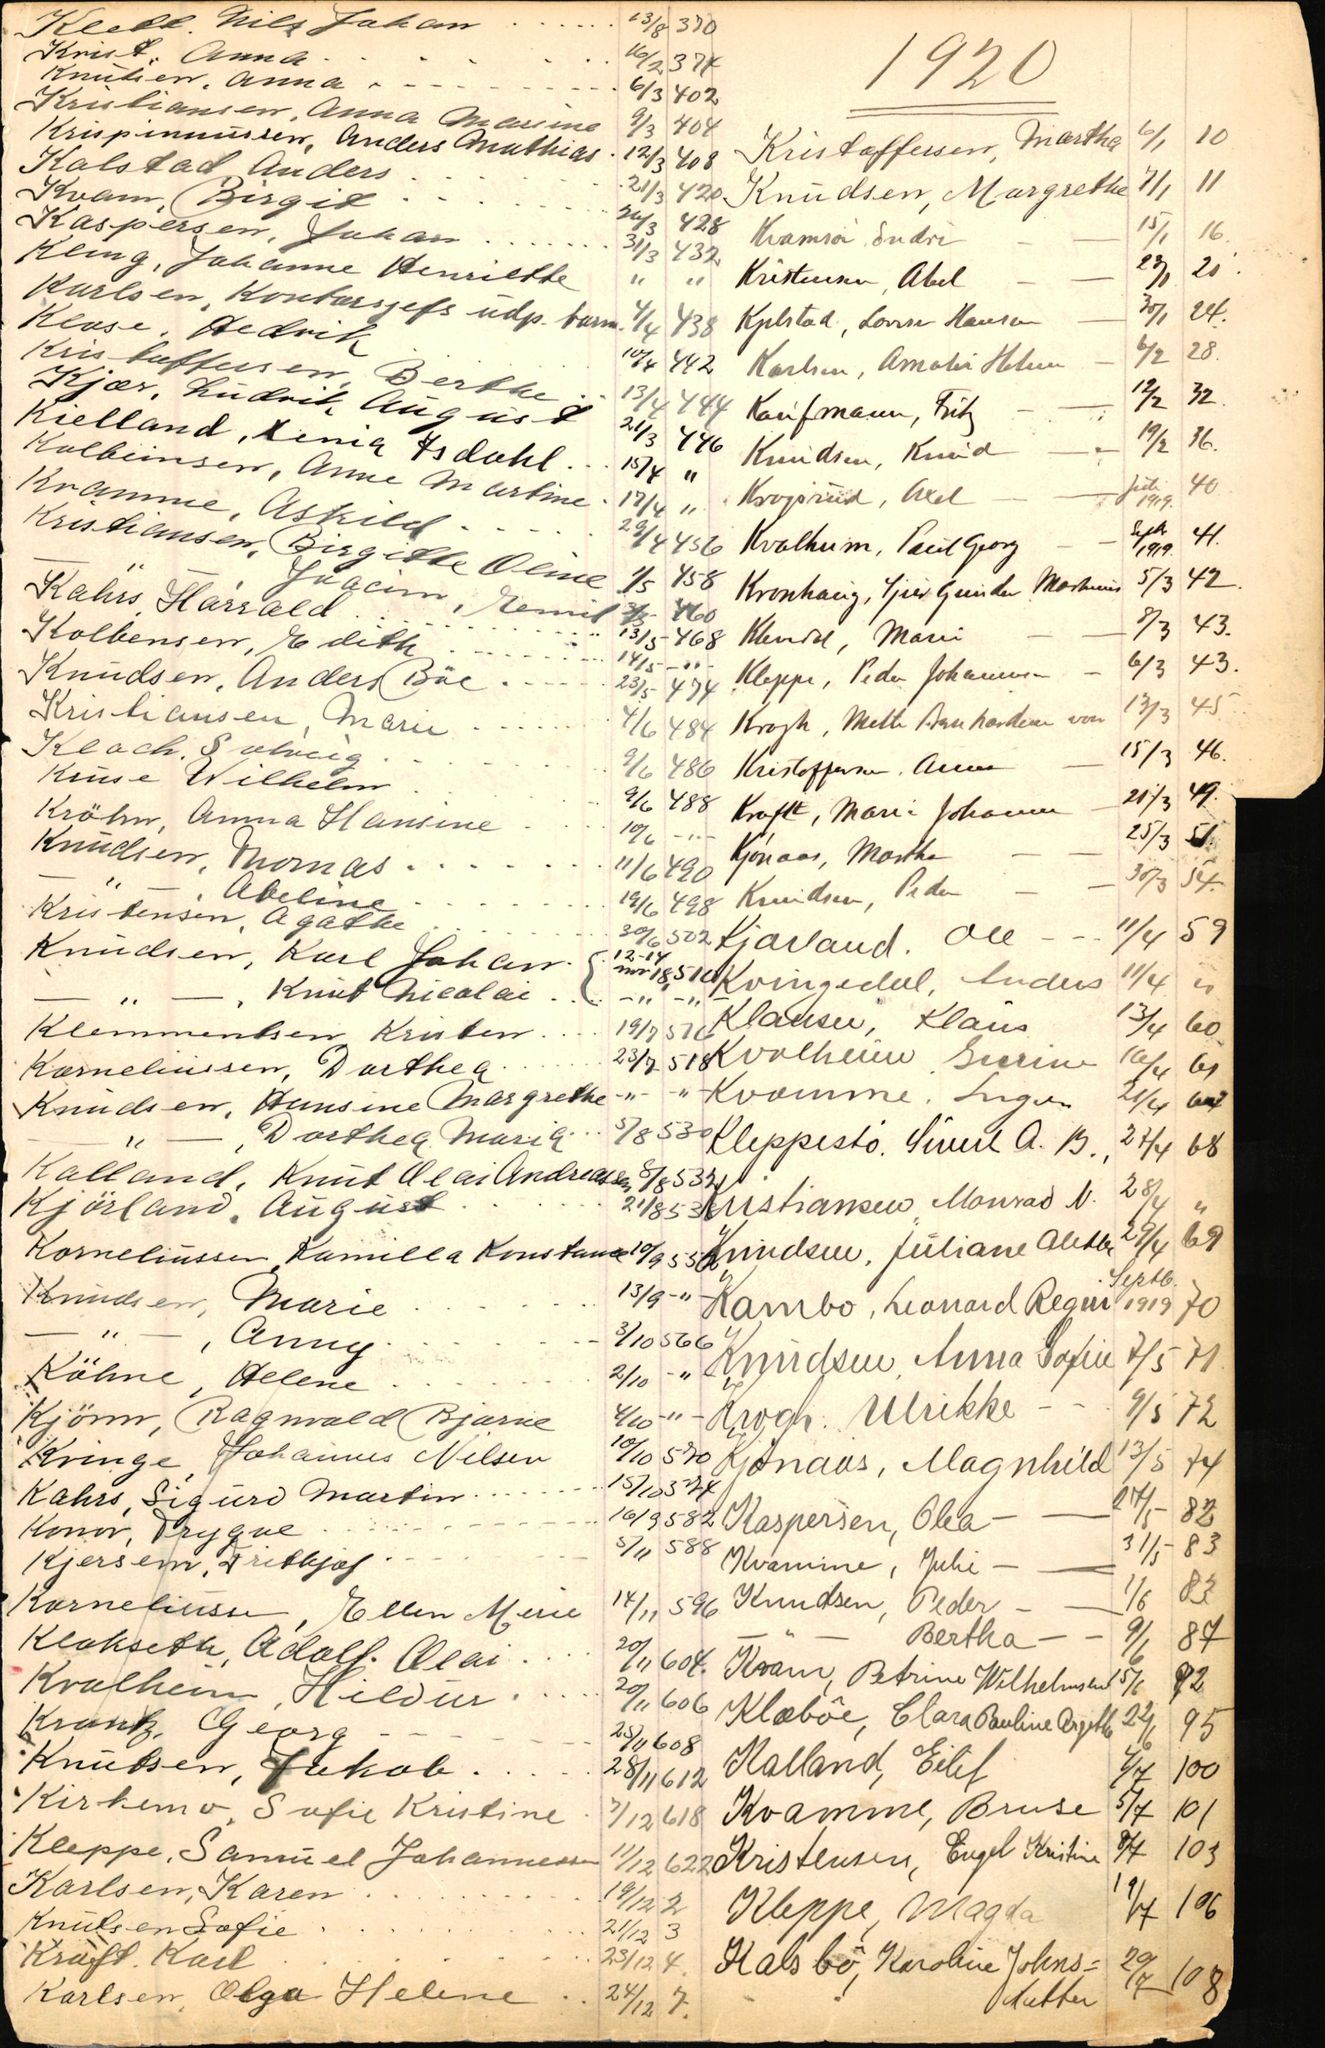 Klett. Nils Johan 13/8 370
Krist. Anna 16/2 374
Knutsen, Anna 6/3 402
Kristiansen, Anna Marine 9/3 404
Krispinussen, Anders Mathias 12/3 408
Kalstad Anders 21/3 420
Kvam, Birgit 26/3 428
Kaspersen, Johan 31/3 432
Kling, Johanne Henriette " "
Karlsen, Kontorsjefs udp. barn 4/4 438
Klose, Hedvik 10/4 442
Kristoffersen Berthe 13/4 444
Kjær, Ludvik August 21/3 446
Kielland, Xenia Isdahl 15/4 "
Kolbeinsen, Anne Martine 17/4 "
Kvamme, Askild 29/4 456
Kristiansen, Birgitte Oline 1/5 458
— Joacim, Emil 3/5 460
Kahrs, Harrald 13/5 468
Kolbensen, Edith 14/5 - " -
Knudsen, Anders Böe 23/5 474
Kristiansen, Marie 4/6 484
Kloch. Solveig 9/6 486
Kruse Wilhelm 9/6 488
Kröhn, Anna Hansine 10/6 - " -
Knudsen, Thomas 11/6 490
— " —, Abeline 19/6 498
Kristensen, Agathe 30/6 502
Knudsen, Karl Johan 12-14 510
— " —, Knut Nicolai - " - - " -
Klemmentsen, Kristen 19/7 516
Korneliussen, Dorthea 23/7 518
Knudsen, Hansine Margrethe - " - - " -
— " —, Dorthea Maria 5/8 530
Kalland, Knut Olai Andreassen 8/8 532
Kjörland, August 21/8 53
Korneliussen, Kamilla Konstance 10/9 556
Knudsen, Marie 13/9 - " -
— " —, Anny 3/10 566
Köhne, Helene 2/10 - " -
Kjönn, Ragnvald Bjarne 4/10 - " -
Kringe, Johannes Nilsen 10/10 570
Kahrs, Sigurd Martin 15/10 574
Konow, Trygve 16/9 582
Kjersem, Frithjof 5/11 588
Korneliussen, Ellen Merie 14/11 596
Klokseth, Adolf Olai 20/11 604.
Kvalheim, Hildur 20/11 606
Krantz, Georg 25/11 608
Knutsen, Jakob 28/11 612
Kirkemo, Sofie Kristine 7/12 618
Kleppe, Samuel Johannessen 11/12 622
Karlsen, Karen 19/12 2
Knutsen Sofie 21/12 3
Kraft. Karl 23/12 4.
Karlsen, Olga Helene 24/12 7.
1920
Kristoffersen, Martha 6/1 10
Knudsen, Margrethe 7/1 11
Kvamsöi Endre 15/1 16.
Kristensen, Abel 23/1 20.
Kjelstad, Lovise Hanson 30/1 24.
Karlsen, Amalie Helene 6/2 28.
Kaufmann, Fritz 12/2 32.
Knudsen, Knud 19/2 36.
Krogsrud, Axel Juli 1919. 40
Kvalheim, Paul Georg Sept 1919. 41.
Kronhaug, Gunder Mathias 5/3 42.
Klendal, Marie 8/3 43.
Kleppe, Peder Johannesen 6/3 43.
Krogh, Mette Bernhardine von 13/3 45
Kristoffersen, Anna 15/3 46.
Krafft, Marie Johanne 21/3 49.
Kjönaas, Martha 25/3 51.
Knudsen, Peder 30/3 54.
Kjarland. Ole 11/4 59
Kvingedal, Anders 11/4 "
Klausen, Klaus 13/4 60
Kvalheim Gurine 16/4 61
Kvamme. Inger 21/4
Kleppestö. Sivert A. B., 27/4 68
Kristiansen, Monrad N. 28/4 "
Knudsen, Juliane Alette 29/4 69
Kambo, Leonard Regin Septb. 1919 70
Knudsen, Anna Sofie 7/5 71.
Krogh. Ulrikke 9/5 72
Kjönaas, Magnhild 13/5 74
Kaspersen, Olea 27/5 82
Kvamme, Julie 31/5 83
Knudsen, Peder 1/6 83
— " — Bertha 9/6 87
Kvam, Petrine Wilhelmsen 15/6 92
Klæböe, Clara Pauline Birgitte 22/6 95
Kalland, Eilif 2/7 100
Kvamme, Bruse 5/7 101
Kristensen, Engel Kristine 8/7 103
Kleppe, Magda 19/7 106
Kalsbö, Karoline Johns= 20/7 108
datter